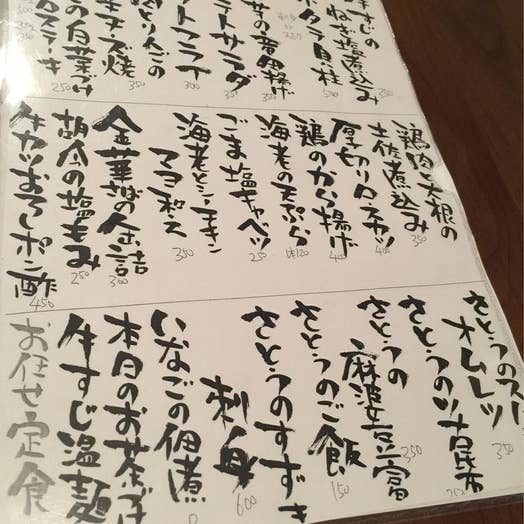 牛すじの
ねぎ塩煮込み
350
ホタテ貝柱
トサラダ
300
チーズ焼
350
の白菜づけ
350
鶏肉と大根の
土佐煮込み
350
厚切りロースカツ
400
鶏のから揚げ
400
海老の天ぷら
1本120
ごま塩キャベツ
250
海老とシーチキン
マヨ和え
350
金華さばの缶詰
300
胡瓜の塩もみ
250
牛カツおろしポン酢
450
さとうのスー
オムレツ
350
さとうのツナ昆布
さとうの
麻婆豆腐
350
さとうのご飯
150
さとうのすずき
刺身
600
いなごの佃煮
本日のお茶づけ
牛すじ温麺
お任せ定食